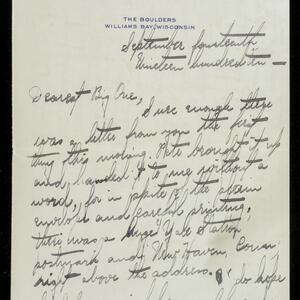 THE BOULDERS
WILLIAMS BAY, WISCONSIN
September fourteenth
Nineteen hundred ten —
Dearest Big One,
Sure enough there
was a letter from you the first
thing this morning. Pete brought it up
and handed it to me without a
word, for in spite of the plain
envelope and careful printing,
there was a huge Yale Station,
postmark and New Haven, Conn.
right above the address. I do hope